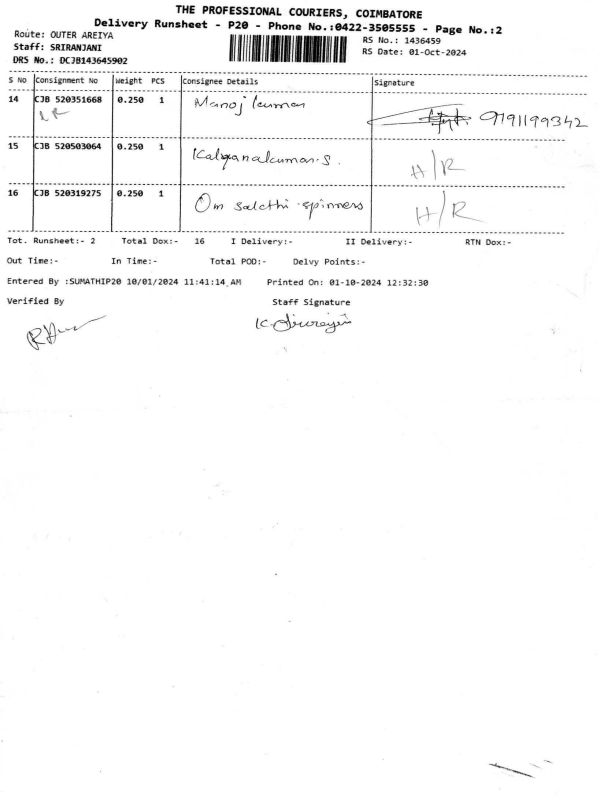 THE PROFESSIONAL COURIERS, COIMBATORE
Delivery Runsheet - P20 - Phone No.:0422-3505555 - Page No.:2
Route: OUTER AREIYA
RS No.: 1436459
Staff: SRIRANJANI
RS Date: 01-Oct-2024
DRS No.: DCJB143645902
S No Consignment No Weight PCS Consignee Details Signature
14 CJB 520351668 0.250 1 Manoj kumar 9791199342
15 CJB 520503064 0.250 1 Kalyanakumar.s. H/R
16 CJB 520319275 0.250 1 Om sakthi spinners H/R
Tot. Runsheet:- 2 Total Dox:- 16 I Delivery:- II Delivery:- RTN Dox:-
Out Time:- In Time:- Total POD:- Delvy Points:-
Entered By :SUMATHIP20 10/01/2024 11:41:14 AM Printed On: 01-10-2024 12:32:30
Verified By Staff Signature